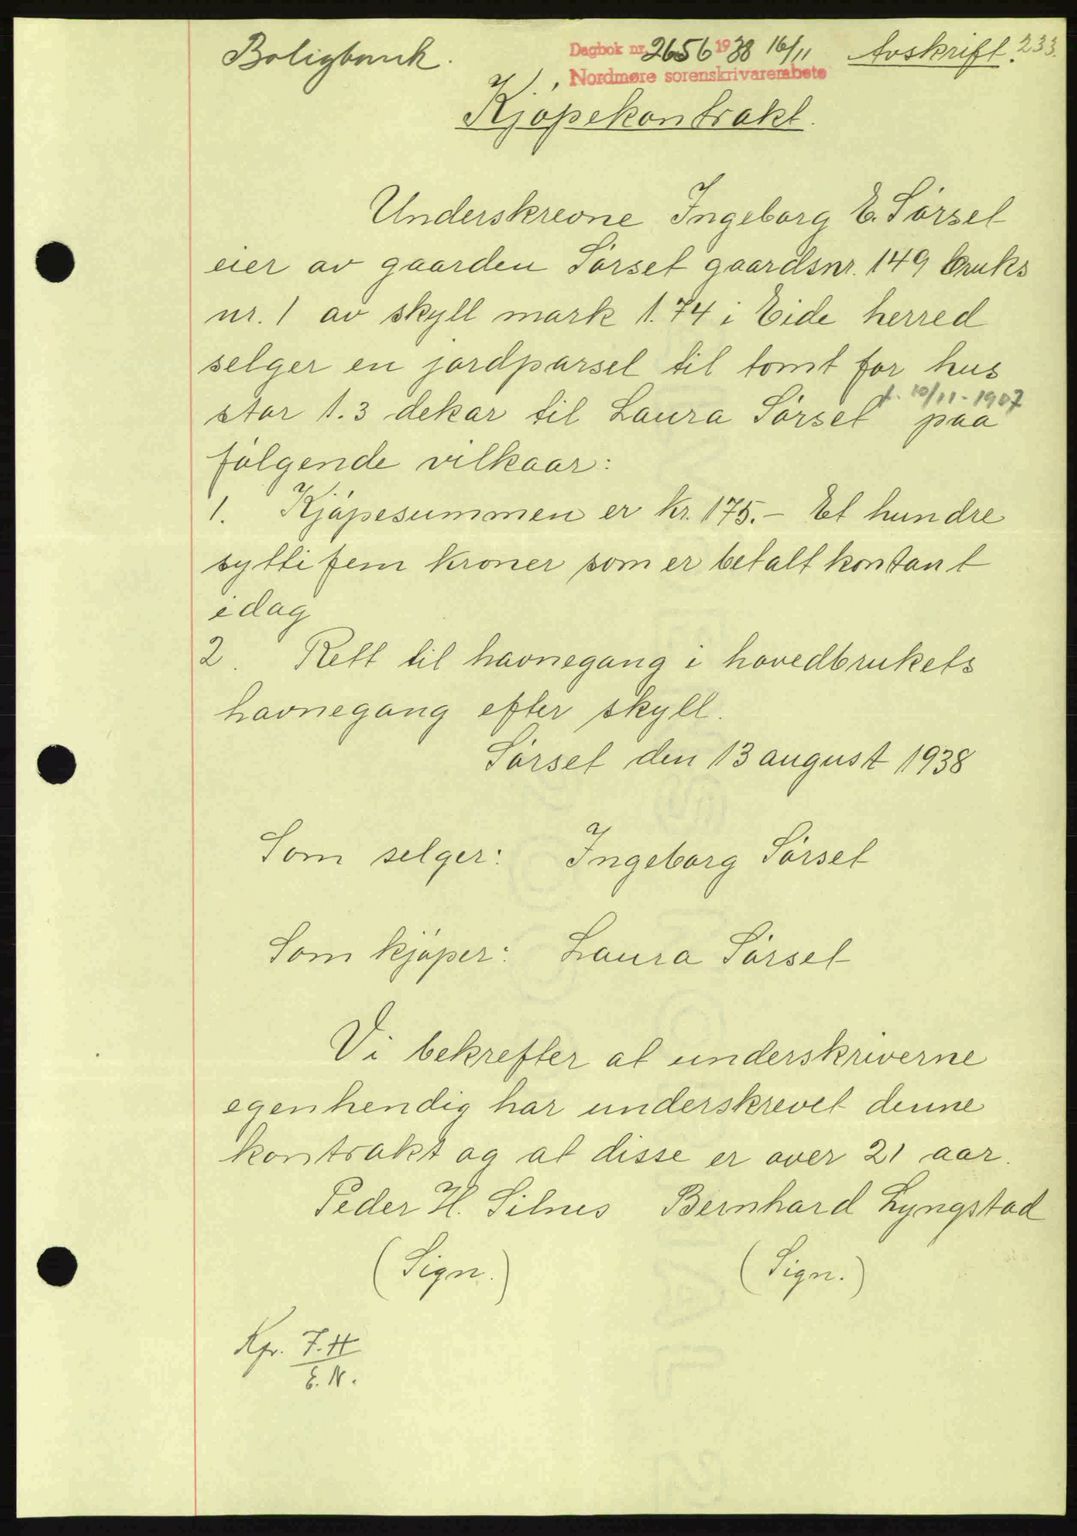 Boligbank.
Dagbok nr. 2656 1938 16/11
Nordmøre sorenskrivarembete
Avskrift. 233.
Kjøpekontrakt.
Underskrevne Ingeborg E. Sørset
eier av gaarden Sørset gaardsnr. 149 bruks
nr. 1 av skyll mark 1.74 i Eide herred
selger en jordparsel til tomt for hus
f. 10/11-1907
stor 1.3 dekar til Laura Sørset paa
følgende vilkaar:
1. Kjøpesummen er kr. 175.- Et hundre
sytti fem kroner som er betalt kontant
idag
2. Rett til havnegang i hovedbrukets
havnegang efter skyll.
Sørset den 13 august 1938
Som selger: Ingeborg Sørset
Som kjøper: Laura Sørset
Vi bekrefter at underskriverne
egenhendig har underskrevet denne
kontrakt og at disse er over 21 aar.
Peder H. Silnes Bernhard Lyngstad
(Sign.) (Sign.)
Kpr. F.H
E.N.